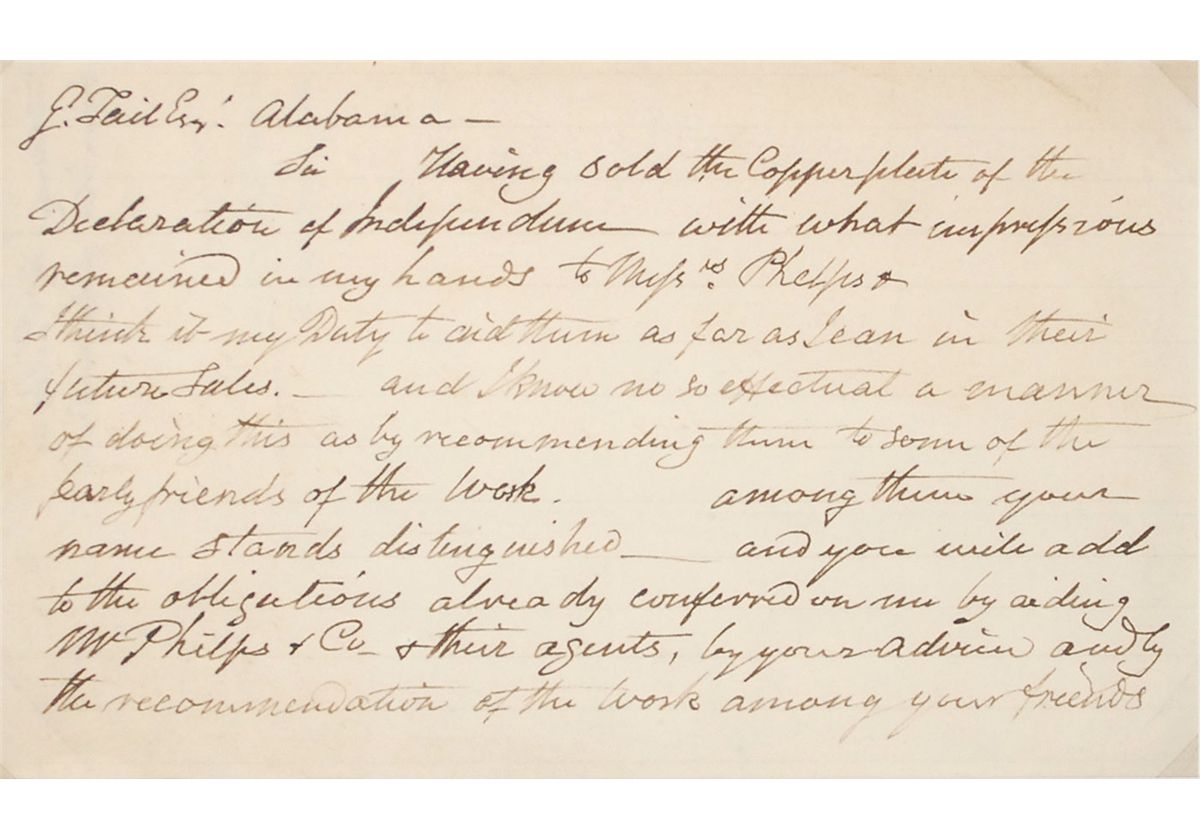 G. Tait Esqr. Alabama —
Sir Having sold the Copperplate of the
Declaration of Independence with what impressions
remained in my hands to Messrs. Phelps &
I think it my Duty to aid them as far as I can in their
future Sales. — and I know no so effectual a manner
of doing this as by recommending them to some of the
early friends of the Work. among them your
name stands distinguished — and you will add
to the obligations already conferred on me by aiding
Mr Phelps & Co & their agents, by your advice and by
the recommendation of the Work among your friends